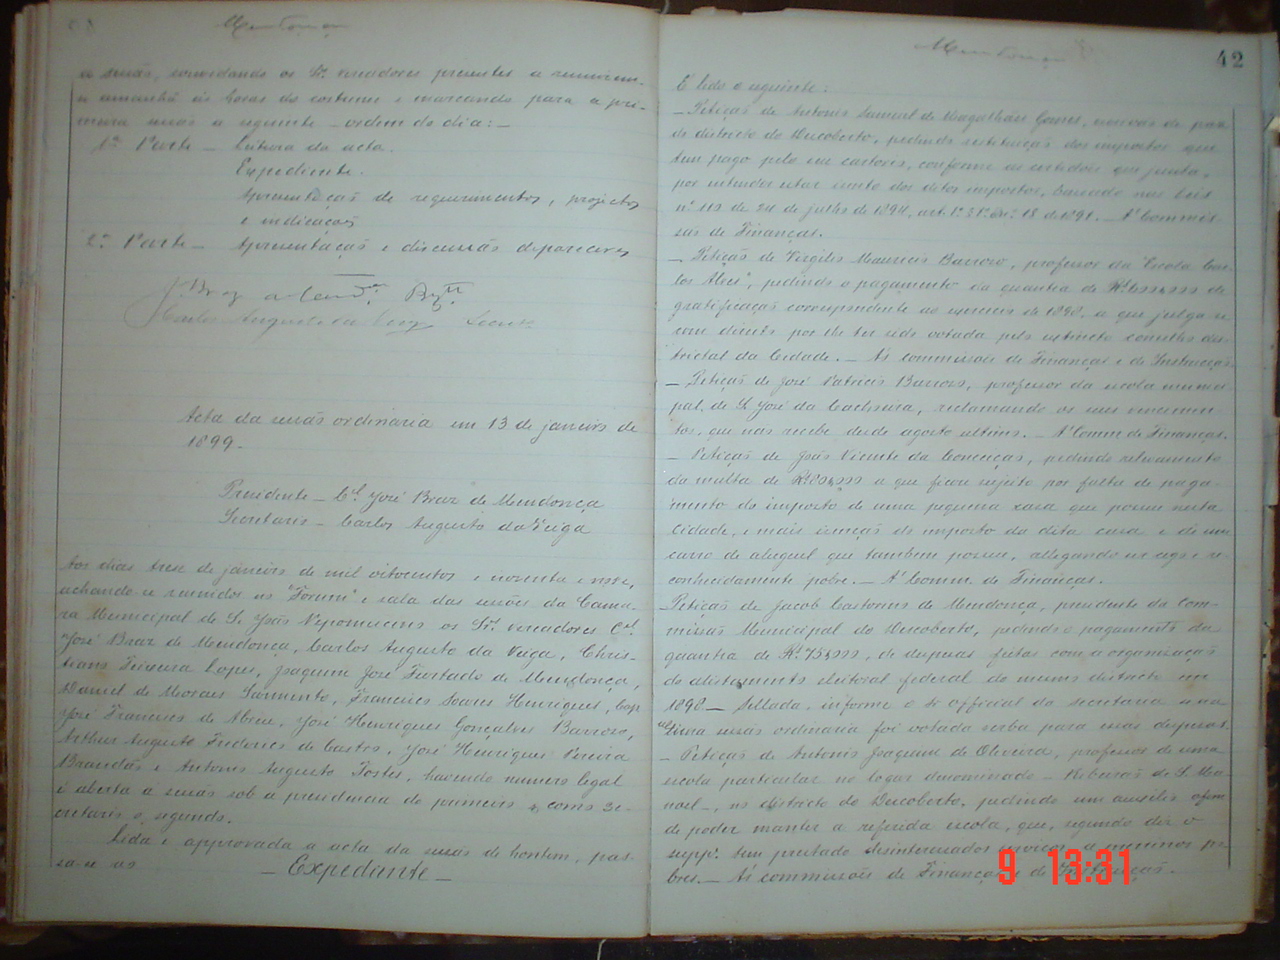 Mendonça
a sessão, convidando os Srs. vereadores presentes a reunirem-
se amanhã ás horas do costume e marcando para a pri-
meira sessão a seguinte - ordem do dia: -
1ª Parte - Leitura da acta.
Expediente.
Apresentação de requerimentos, projectos
e indicações
2ª Parte - Apresentação e discussão de pareceres
Carlos Augusto da Veiga Secretº
Acta da sessão ordinaria em 13 de janeiro de
1899.
Presidente - Cel José Braz de Mendonça
Secretario - Carlos Augusto da Veiga
Aos dias treze de janeiro de mil oitocentos e noventa e nove,
achando-se reunidos no "Forum" e sala das sessões da Cama-
ra Municipal de S. João Nepomuceno os Srs. vereadores Cel.
José Braz de Mendonça, Carlos Augusto da Veiga, Chris-
tiano Teixeira Lopes, Joaquim José Furtado de Mendonça,
Daniel de Moraes Sarmento, Francisco Soares Henriques, Cap
José Francisco de Abreu, José Henriques Gonçalves Barroso,
Arthur Augusto Frederico de Castro, José Henriques Pereira
Brandão e Antonio Augusto Fortes, havendo numero legal
é aberta a sessão sob a presidencia do primeiro e, como se-
cretario o segundo.
Lida e approvada a acta da sessão de hontem, pas-
sa-se ao
- Expediente -
Mendonça
42
É lido o seguinte:
- Petição de Antonio Samuel de Magalhães Gomes, escrivão de paz
do districto do Descoberto, pedindo restituição dos impostos que
tem pago pelo seu cartorio, conforme as certidões que junta,
por entender estar isento dos ditos impostos, baseado nas leis
nº 112 de 24 de julho de 1894, art. 1º 18 de 1891. - Á Commis-
são de Finanças.
- Petição de Virgilio Mauricio Barroso, professor da "Escola Car-
los Alves", pedindo o pagamento da quantia de de
gratificação correspondente ao exercicio de 1898, a que julga-se
com direito por lhe ter sido votada pelo extincto conselho dis-
trictal da Cidade. - Ás commissões de Finanças e de Instrucção.
- Petição de José Patricio Barroso, professor da escola munici-
pal de S. José da Cachoeira, reclamando os seus vencimen-
tos, que não recebe desde agosto ultimo. - Á Comm de Finanças.
- Petição de João Vicente da Conceição, pedindo relevamento
da multa de a que ficou sujeito por falta de paga-
mento do imposto de uma pequena casa que possue nesta
Cidade, e mais isenção do imposto da dita casa e de um
carro de aluguel que tambem possue, allegando ser cego e re-
conhecidamente pobre. - Á Comm. de Finanças.
Petição de Jacob Castorino de Mendonça, presidente da Com-
missão Municipal do Descoberto, pedindo o pagamento da
quantia de de despesas feitas com a organização
do alistamento eleitoral federal do mesmo districto em
1898. - Sellada, informe o Sr official da secretaria se na
ultima sessão ordinaria foi votada verba para essas despesas.
- Petição de Antonio Joaquim de Oliveira, professor de uma
escola particular no logar denominado - Ribeirão de S. Ma-
noel -, no districto do Descoberto, pedindo um auxilio afim
de poder manter a referida escola, que, segundo diz o
suppe. tem prestado desinteressados serviços a meninos po-
bres. - Ás commissões de Finanças e de Instrucção.
9 13:31